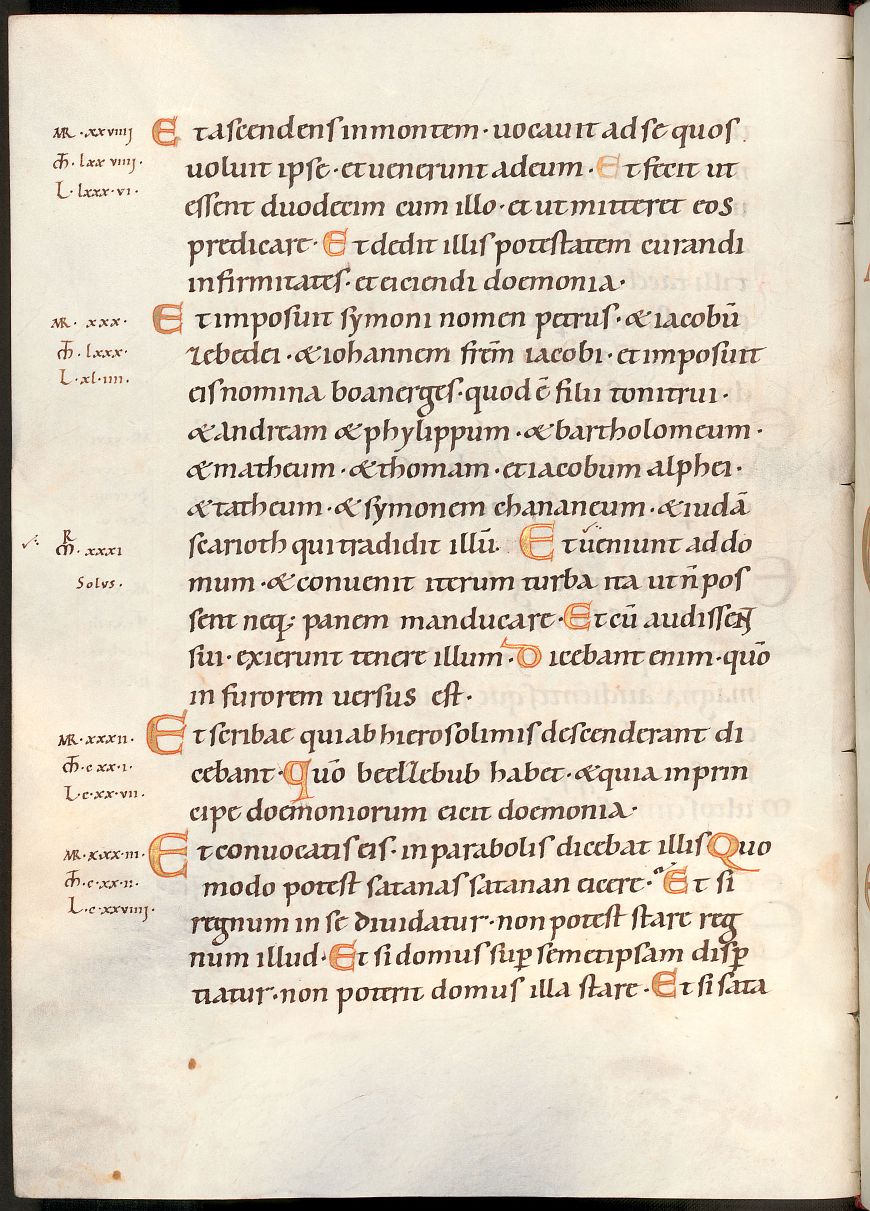 MR · xxviiii
Et ascendens in montem · uocauit ad se quos
m̄ · lxx viiii ·
uoluit ipse · et uenerunt ad eum · Et fecit ut
L · lxxx · vi ·
essent duodecim cum illo · et ut mitteret eos
predicare · Et dedit illis potestatem curandi
infirmitates · et eiciendi doemonia ·
MR · xxx ·
Et imposuit symoni nomen petrus · & iacobū
m̄ · lxxx ·
zebedei · & iohannem frēm iacobi · et imposuit
L · xl · iiii ·
eis nomina boanerges · quod ē filii tonitrui ·
& andream & phylippum · & bartholomeum ·
& matheum · & thomam · et iacobum alphei ·
& tatheum · & symonem chananeum · & iudā
MR · xxxi
scarioth qui tradidit illū · Et ueniunt ad do
Solus ·
mum · & convenit iterum turba ita ut n̄ pos
sent neq; panem manducare · Et cū audissent
sui · exierunt tenere illum · Dicebant enim · quō
in furorem versus est ·
MR · xxxii ·
Et scribae qui ab hierosolimis descenderant di
m̄ · c xx · i ·
cebant · quō beelzebub habet · & quia in prin
L · c · xx · vii ·
cipe doemoniorum eicit doemonia ·
MR · xxx · iii ·
Et convocatis eis · in parabolis dicebat illis Quo
m̄ · c · xx · ii ·
modo potest satanas satanan eicere · Et si
L · c · xxviiii ·
regnum in se diuidatur · non potest stare reg
num illud · Et si domus suꝑ semetipsam disꝑ
tiatur · non poterit domus illa stare · Et si sata